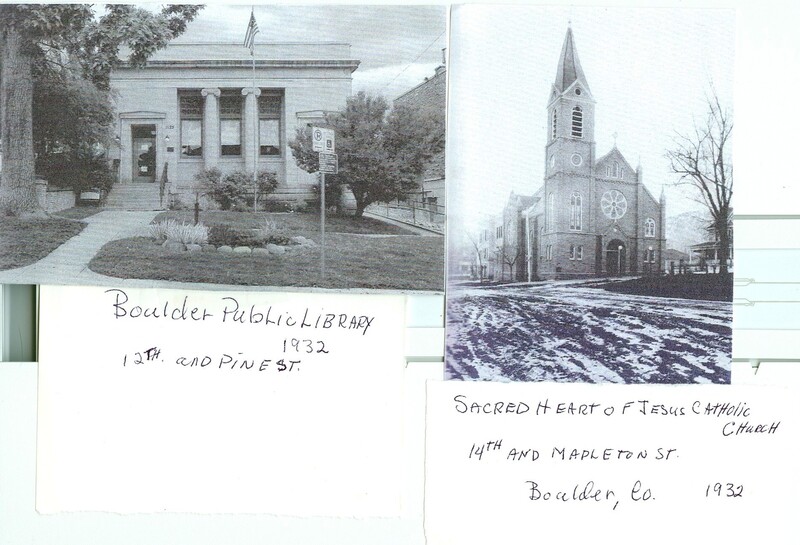 Boulder Public Library
1932
12TH. and Pine St.
Sacred Heart of Jesus Catholic
Church
14TH and Mapleton St.
Boulder, Co. 1932